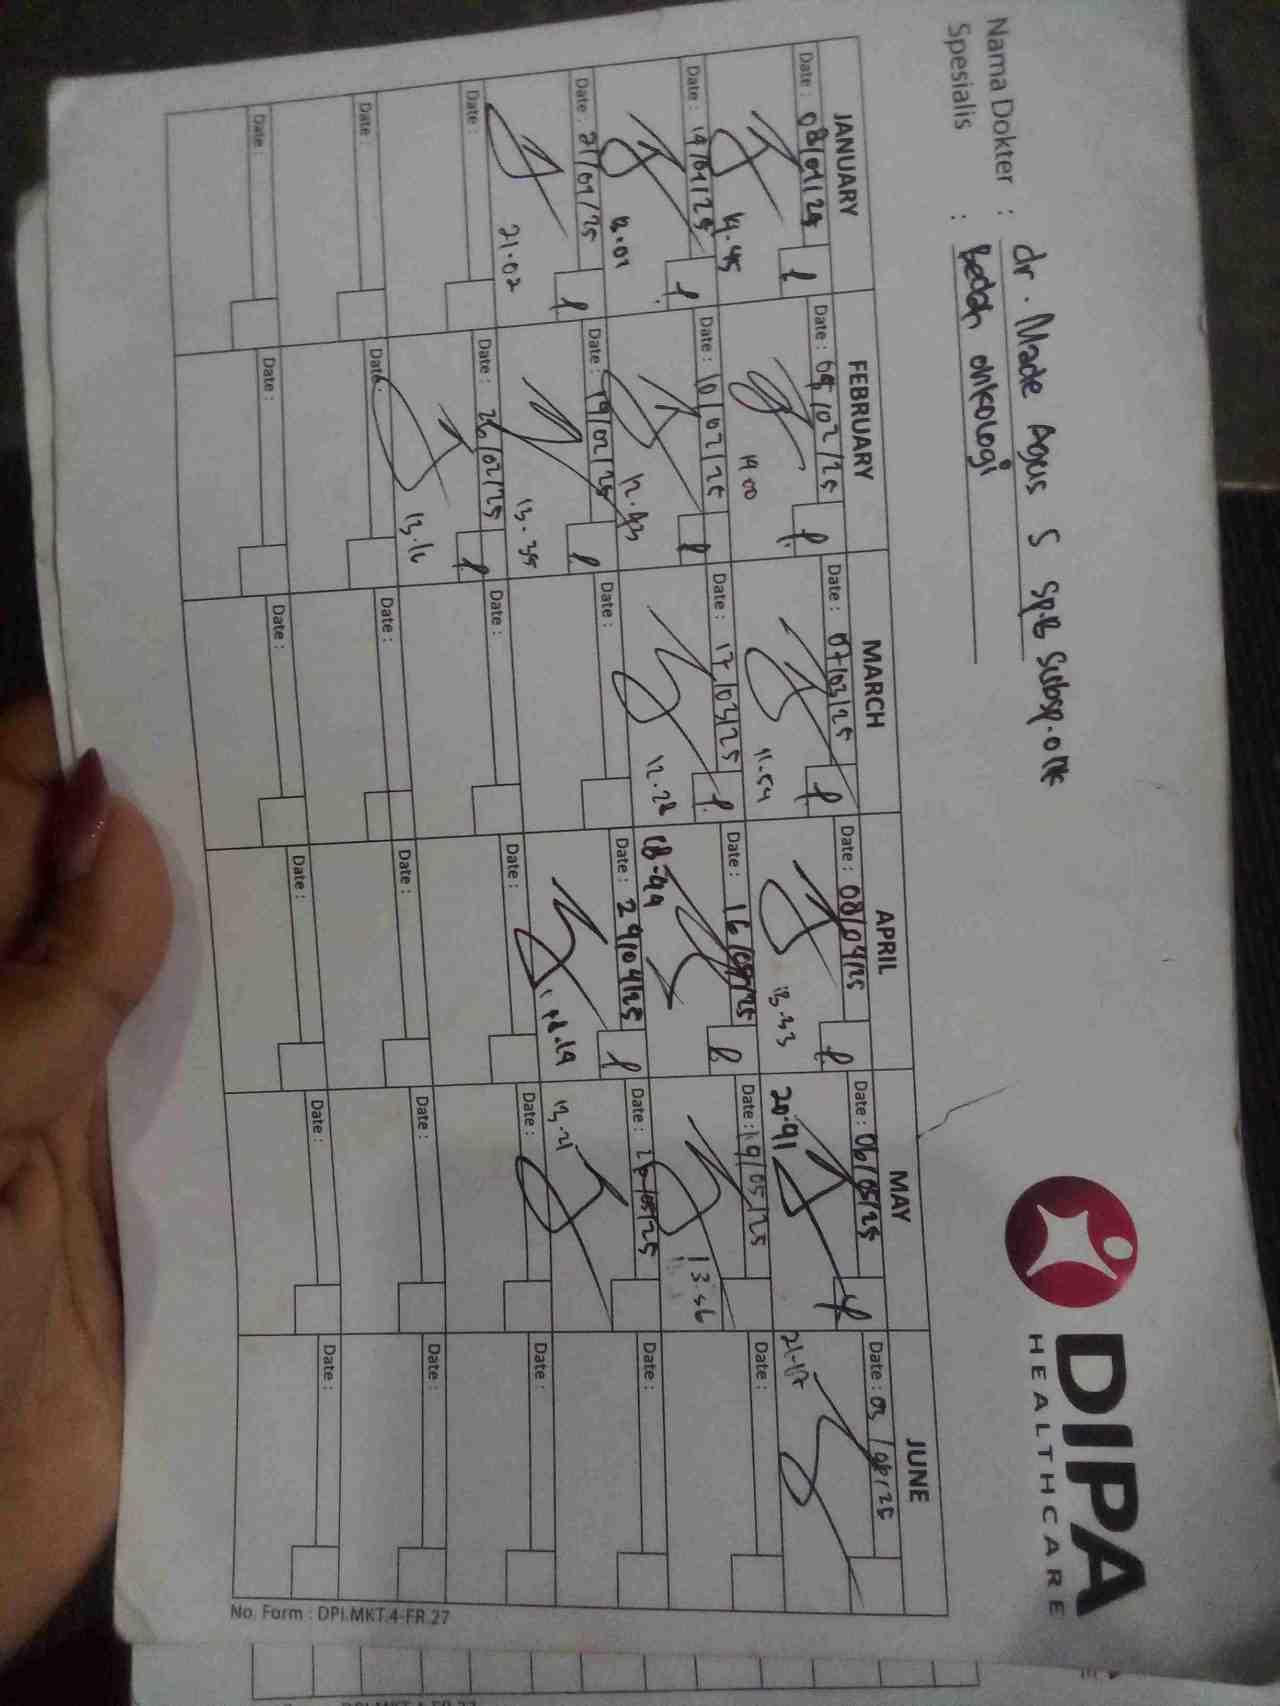 DIPA
HEALTHCARE
Nama Dokter : dr. Made Agus S Sp.B Subsp. Onk
Spesialis : Bedah onkologi
JANUARY FEBRUARY MARCH APRIL MAY JUNE
Date : 08/01/25 Date : Date : 07/03/25 Date : 08/04/25 Date : 06/05/25 Date : 03/06/25
14.45 19 00 11.54 13.33 20.41 21.17
Date : 14/01/25 Date : 10/02/25 Date : 17/03/25 Date : 16/04/25 Date : 19/05/25 Date :
12.43 12.28 18.44 13.56
Date : 21/01/25 Date : 19/02/25 Date : Date : 29/04/25 Date : 26/05/25 Date :
21.02 13.35 13.21
Date : Date : 26/02/25 Date : Date : Date : Date :
13.16
Date : Date : Date : Date : Date : Date :
Date : Date : Date : Date : Date : Date :
No. Form : DPI.MKT.4-FR.27